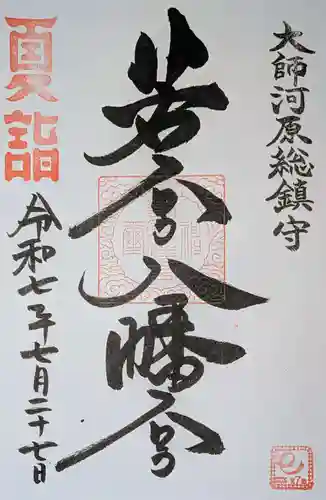 大師河原総鎮守
若宮八幡宮
夏詣
令和七年七月二十七日